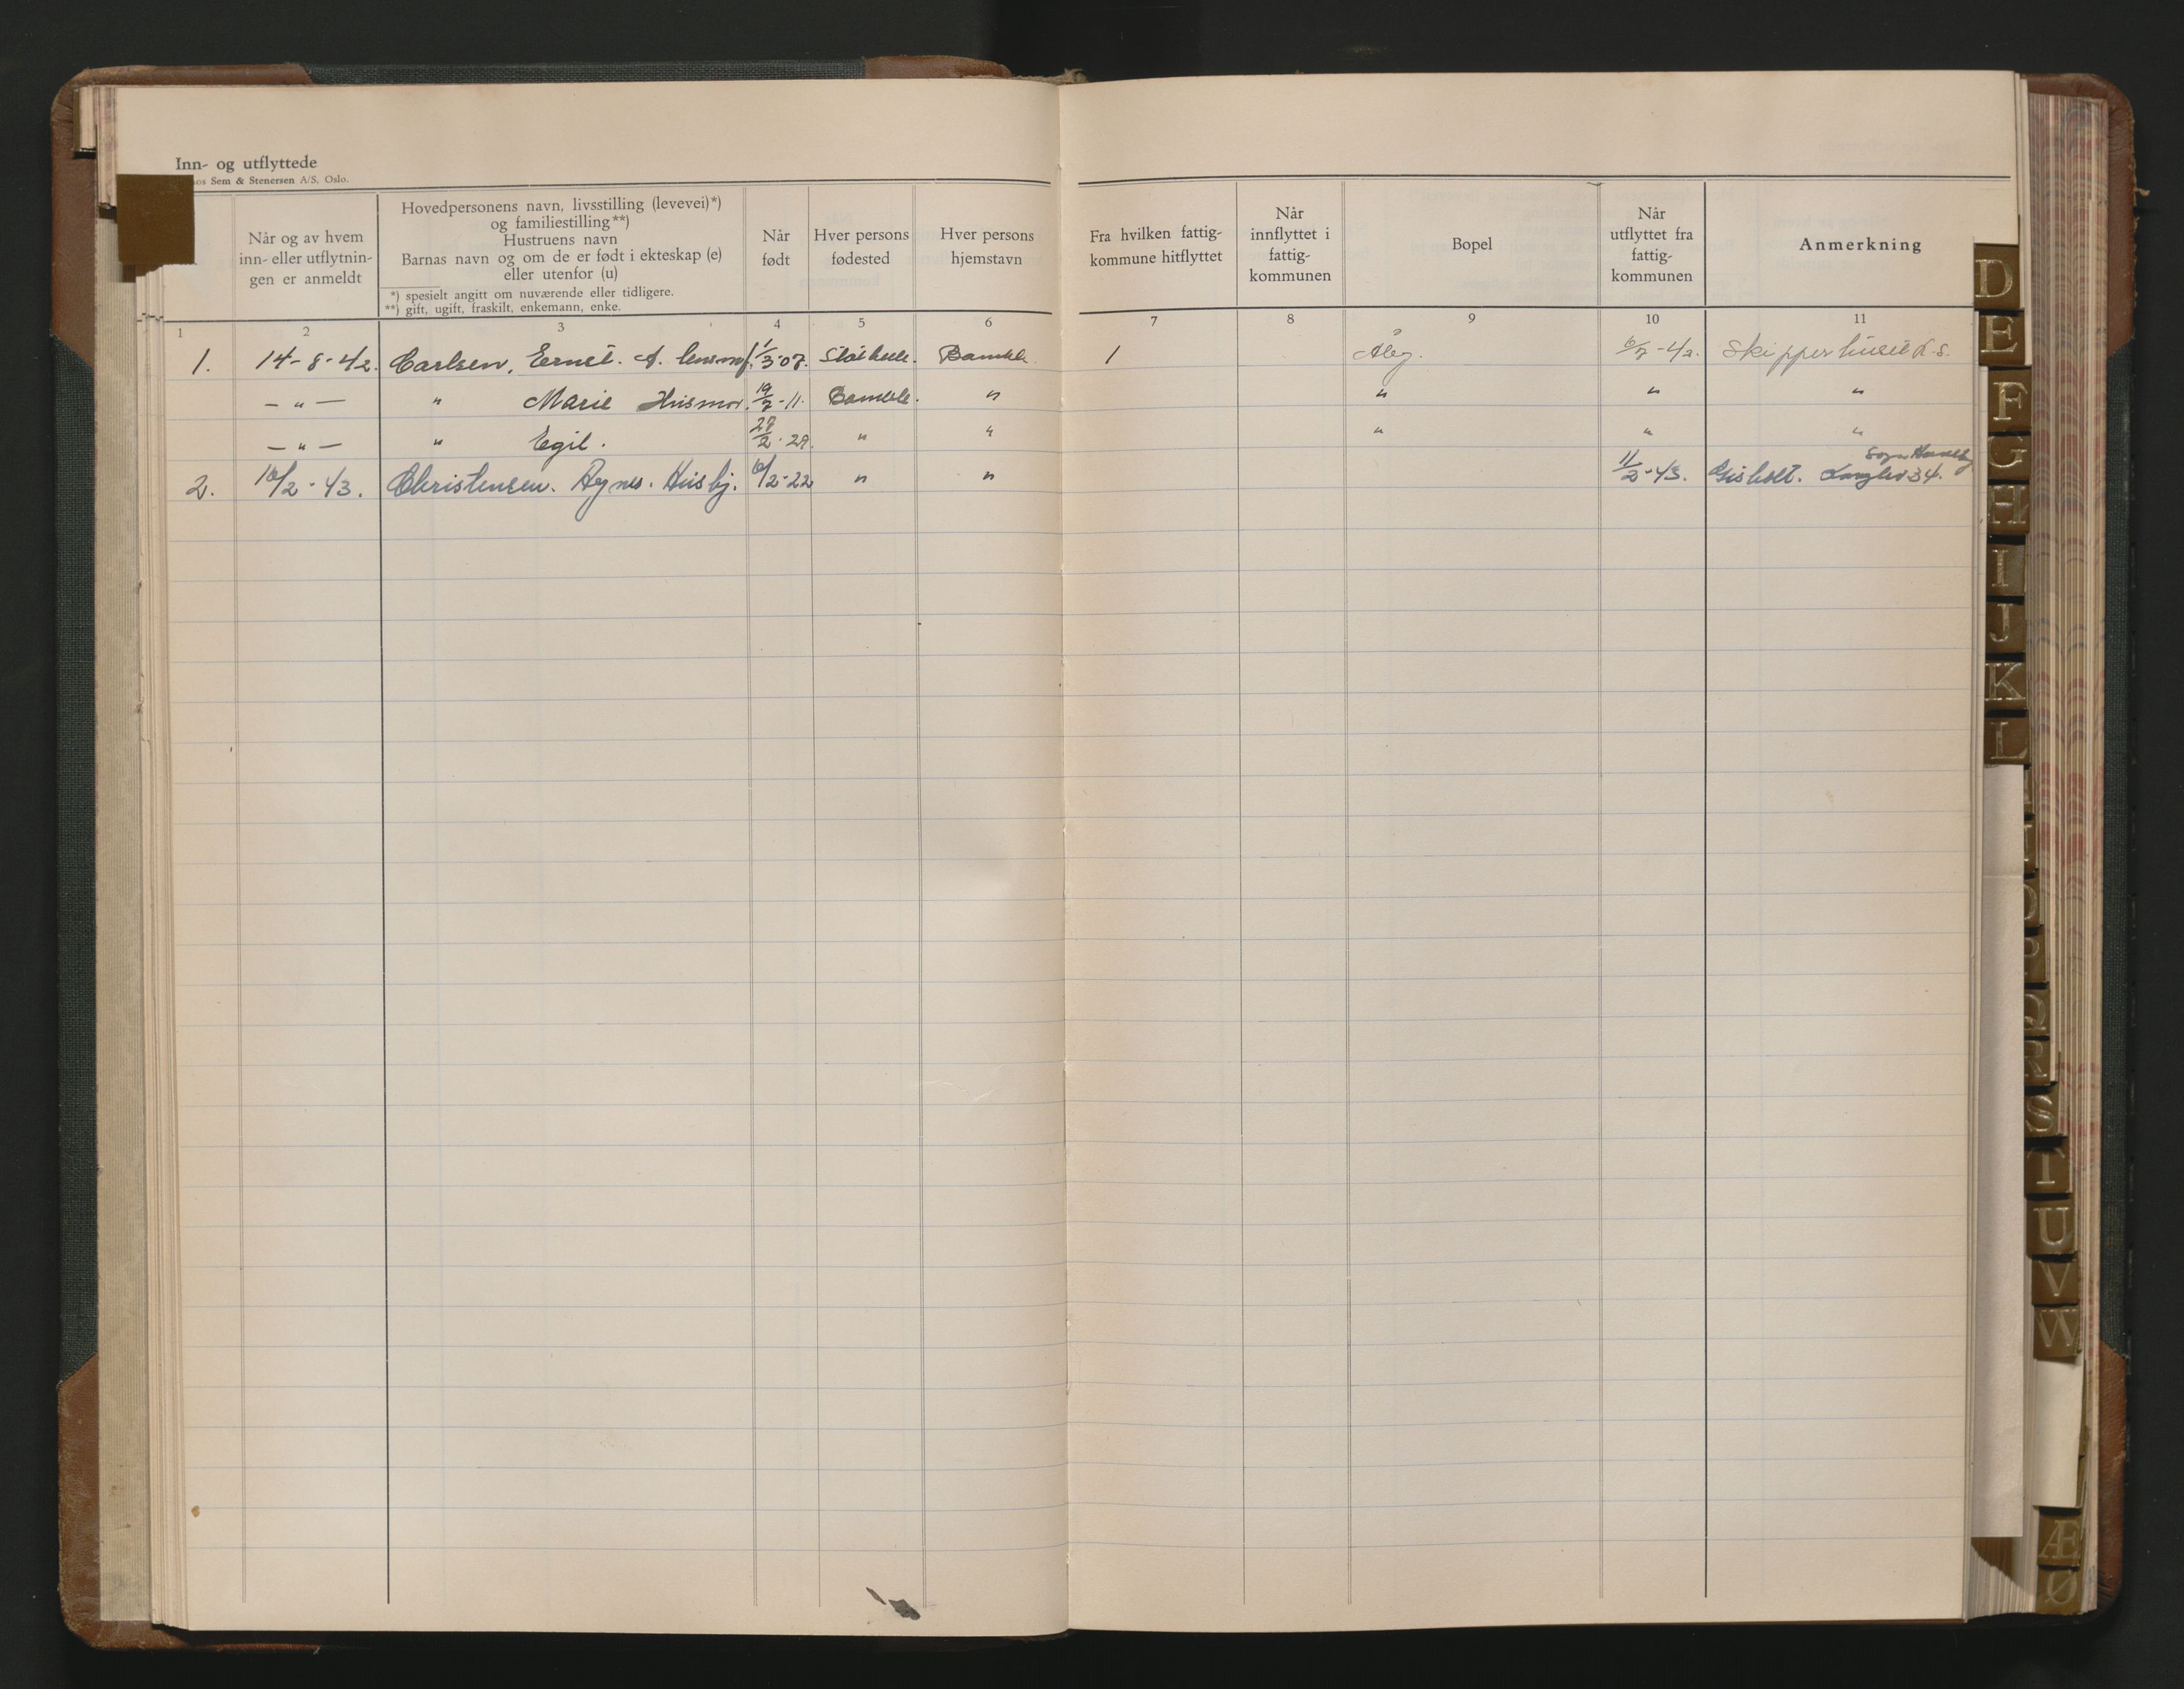 Inn- og utflyttede
Sem & Stenersen A/S, Oslo.
Når og av hvem
inn- eller utflytnin-
gen er anmeldt
Hovedpersonens navn, livsstilling (levevei)*)
og familiestilling**)
Hustruens navn
Barnas navn og om de er født i ekteskap (e)
eller utenfor (u)
*) spesielt angitt om nuværende eller tidligere.
**) gift, ugift, fraskilt, enkemann, enke.
Når
født
Hver persons
fødested
Hver persons
hjemstavn
Fra hvilken fattig-
kommune hitflyttet
Når
innflyttet i
fattig-
kommunen
Bopel
Når
utflyttet fra
fattig-
kommunen
Anmerkning
1 2 3 4 5 6 7 8 9 10 11
1. 14-8-42. Carlsen, Ernst. A. 1/3-07. Bamble 1 6/7-42. Skipperhuset
-"- " Marie Husmor. 19/7-11. Bamble. " " " "
-"- " Egil. 27/2-29. " " " " "
2. 16/2-43. Christensen. Agnes. Hushj. 6/2-22 " " 11/2-43. Gisholt. 34.
D
E
F
G
H
I
J
K
L
Q
R
S
T
U
V
W
Æ
Ø